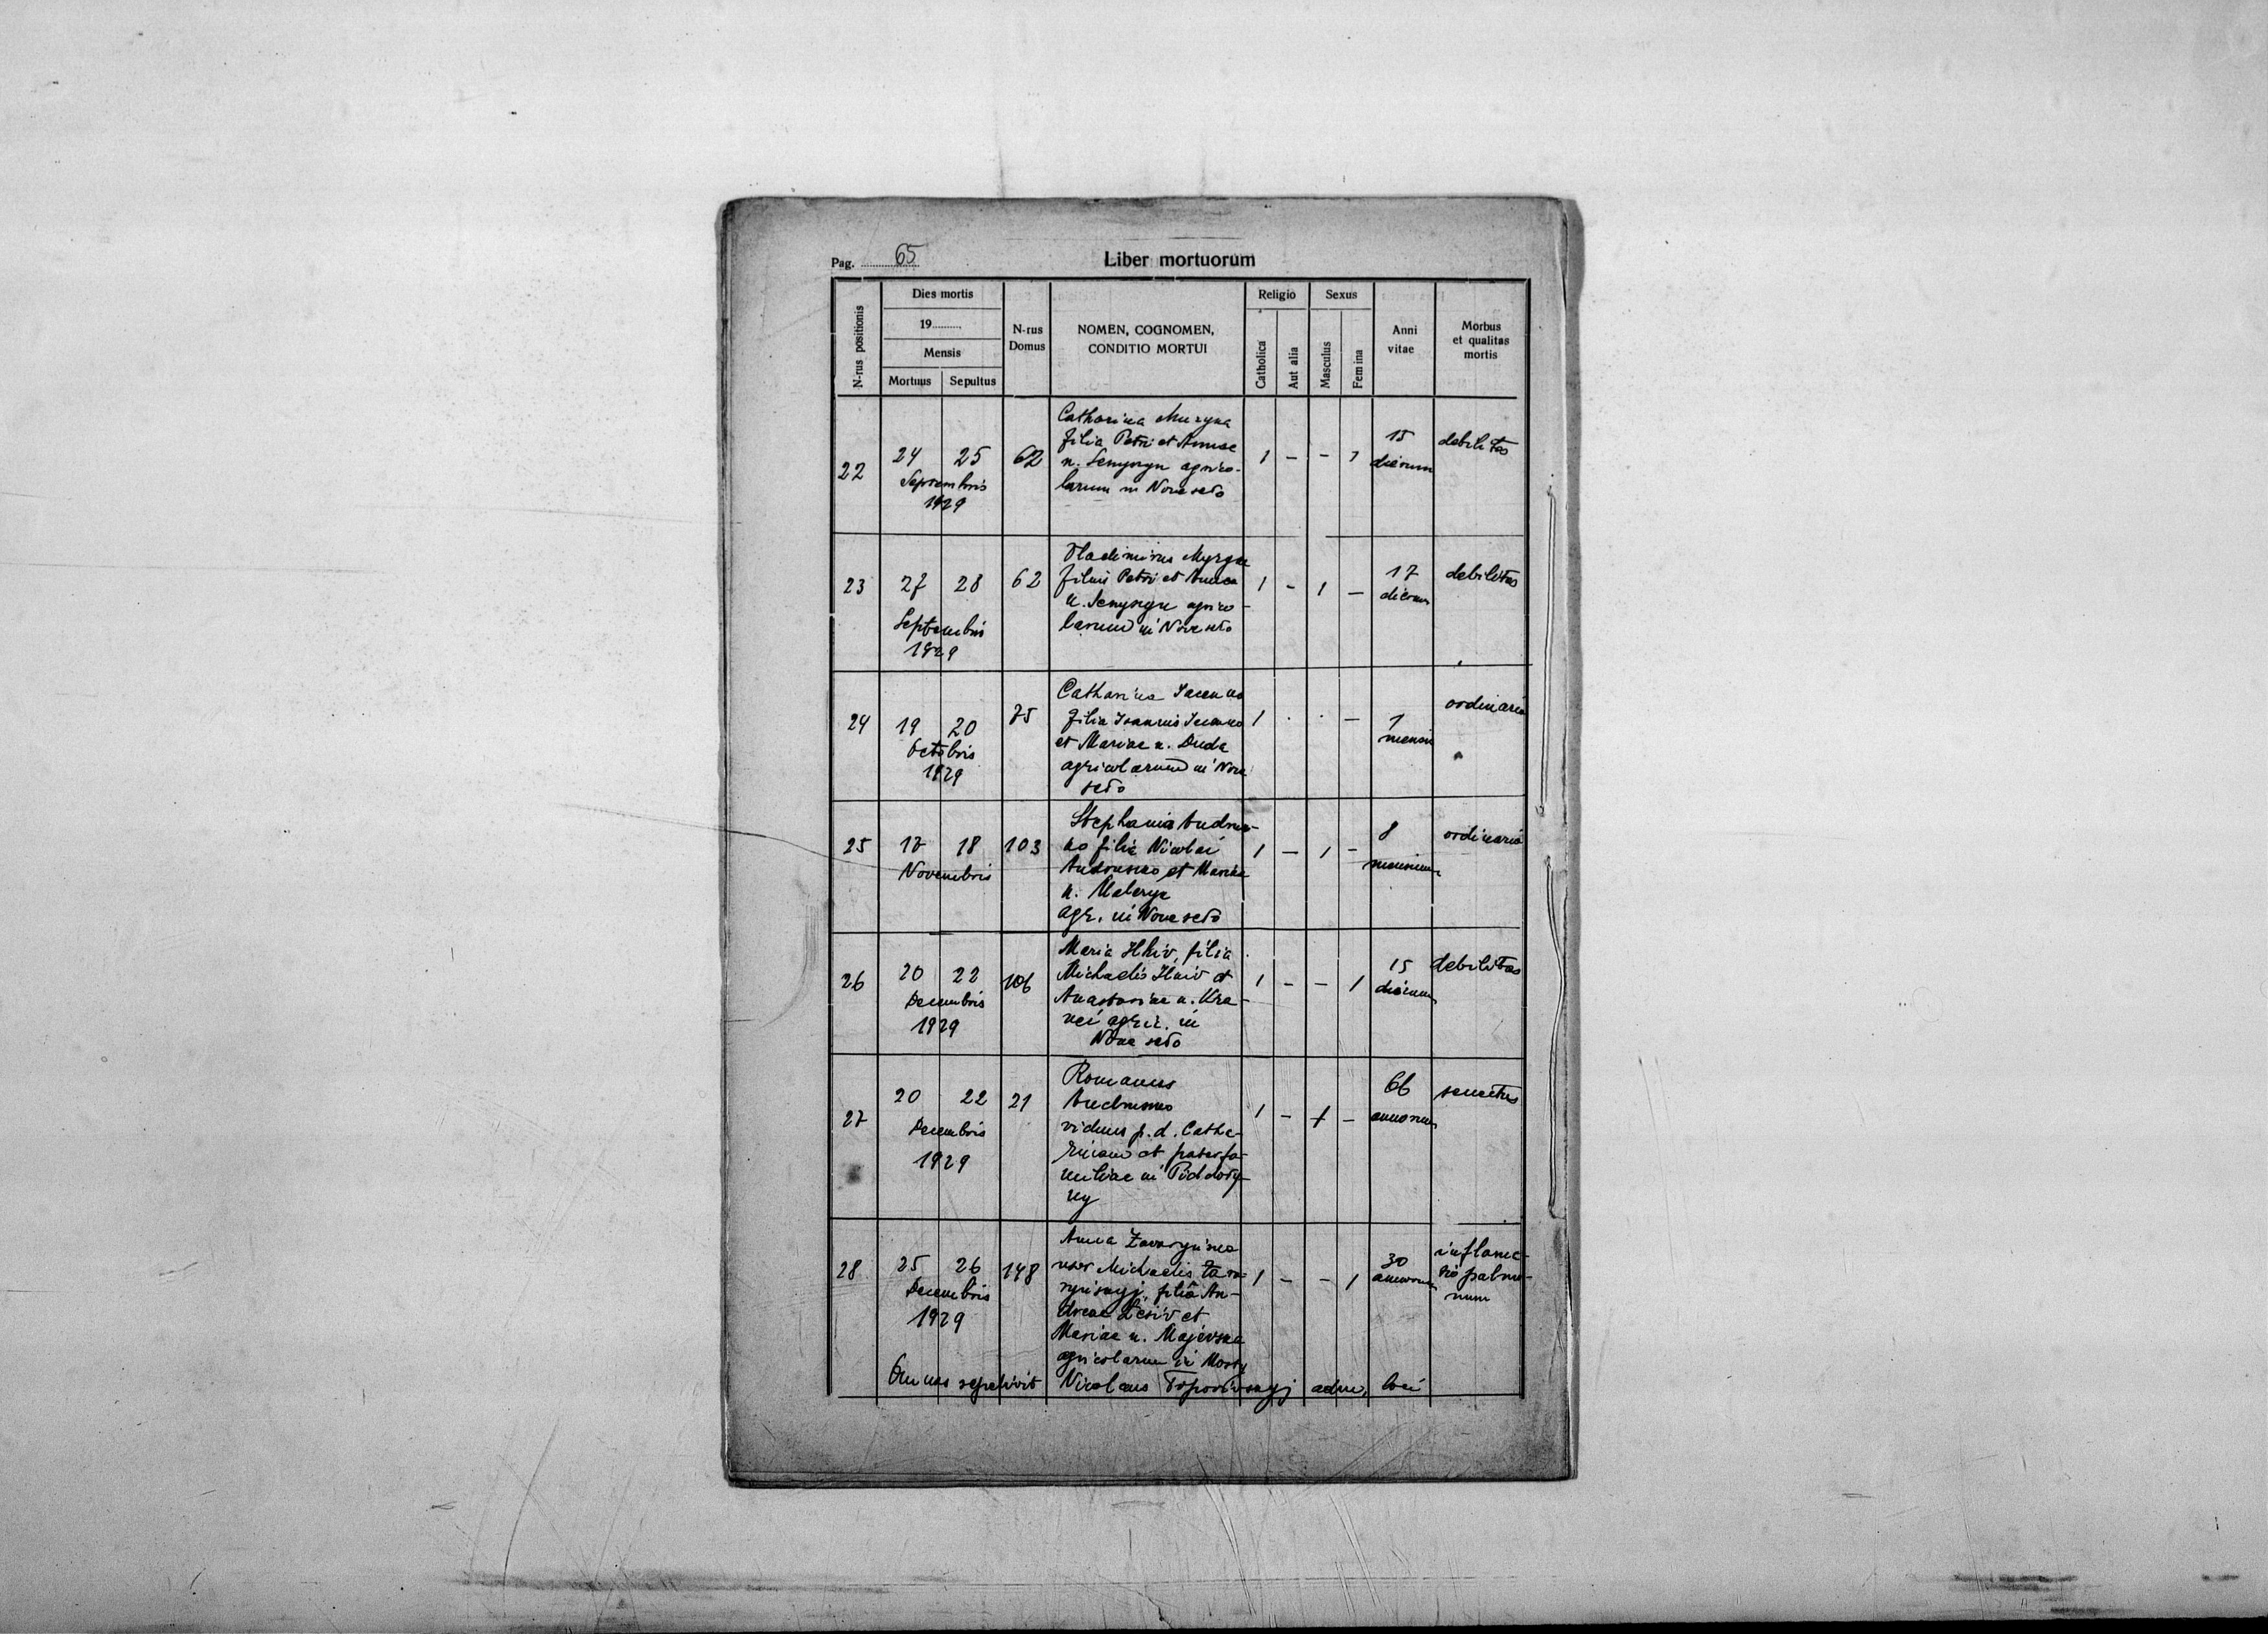 Pag. 65
Liber mortuorum
N-rus positionis
Dies mortis
19
Mensis
Mortuus Sepultus
N-rus Domus
NOMEN, COGNOMEN,
CONDITIO MORTUI
Religio
Catholica
Aut alia
Sexus
Masculus
Femina
Anni
vitae
Morbus
et qualitas
mortis
22
24 25
Septembris
1929
62
Catharina Muzyka
filia Petri et Annae
n. Senyszyn agrico-
larum in Nove seło
1 - - 1
15
dierum
debilitas
23
27 28
Septembris
1929
62
Vladimirus Muzyka
filius Petri et Annae
n. Senyszyn agrico-
larum in Nove seło
1 - 1 -
17
dierum
debilitas
24
19 20
Octobris
1929
75
Catharina
filia Joannis
et Mariae n. Duda
agricolarum in Nove
seło
1 . . -
1
mensis
ordinaria
25
17 18
Novembris
103
Stephania Andrus-
ko filia Nicolai
Andrusko et Mariae
n.
agr. in Nove seło
1 - 1 -
8
mensium
ordinaria
26
20 22
Decembris
1929
106
Maria Ilkiv, filia
Michaelis Ilkiv et
Anastasiae n. Kra-
vci agric. in
Nove seło
1 - - 1
15
dierum
debilitas
27
20 22
Decembris
1929
21
Romanus
Andrusko
viduus p. d. Catha-
rinam et paterfa-
miliae in Piddoly-
ny
1 - 1 -
66
annorum
senectus
28
25 26
Decembris
1929
148
Anna
uxor Michaelis
filia An-
dreae Lesiv et
Mariae n. Majevska
agricolarum in Mosty
1 - - 1
30
annorum
inflama-
tio pulmo-
num
Omnes sepelivit Nicolaus Toporivskyj adm. loci